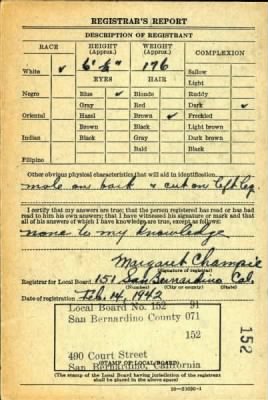 REGISTRAR'S REPORT
DESCRIPTION OF REGISTRANT
RACE HEIGHT (Approx.) WEIGHT (Approx.) COMPLEXION
White ✓ 6' ½" 176 Sallow
Light
EYES HAIR
Negro Blue ✓ Blonde Ruddy
Gray Red Dark ✓
Oriental Hazel Brown ✓ Freckled
Brown Black Light brown
Indian Black Gray Dark brown
Bald Black
Filipino
Other obvious physical characteristics that will aid in identification
mole on back & cut on left leg
I certify that my answers are true; that the person registered has read or has had
read to him his own answers; that I have witnessed his signature or mark and that
all of his answers of which I have knowledge are true, except as follows:
none to my knowledge
Margaret Champie
(Signature of registrar)
Registrar for Local Board 151 San Bernardino Cal.
(Number) (City or county) (State)
Date of registration Feb. 14, 1942
Local Board No. 152 91
San Bernardino County 071
152
490 Court Street
San Bernardino, California
(STAMP OF LOCAL BOARD)
(The stamp of the Local Board having jurisdiction of the registrant
shall be placed in the above space)
152